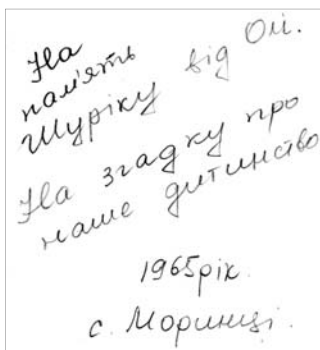 На
пам'ять
Шуріку від Олі.
На згадку про
наше дитинство
1965рік.
с. Моринці.